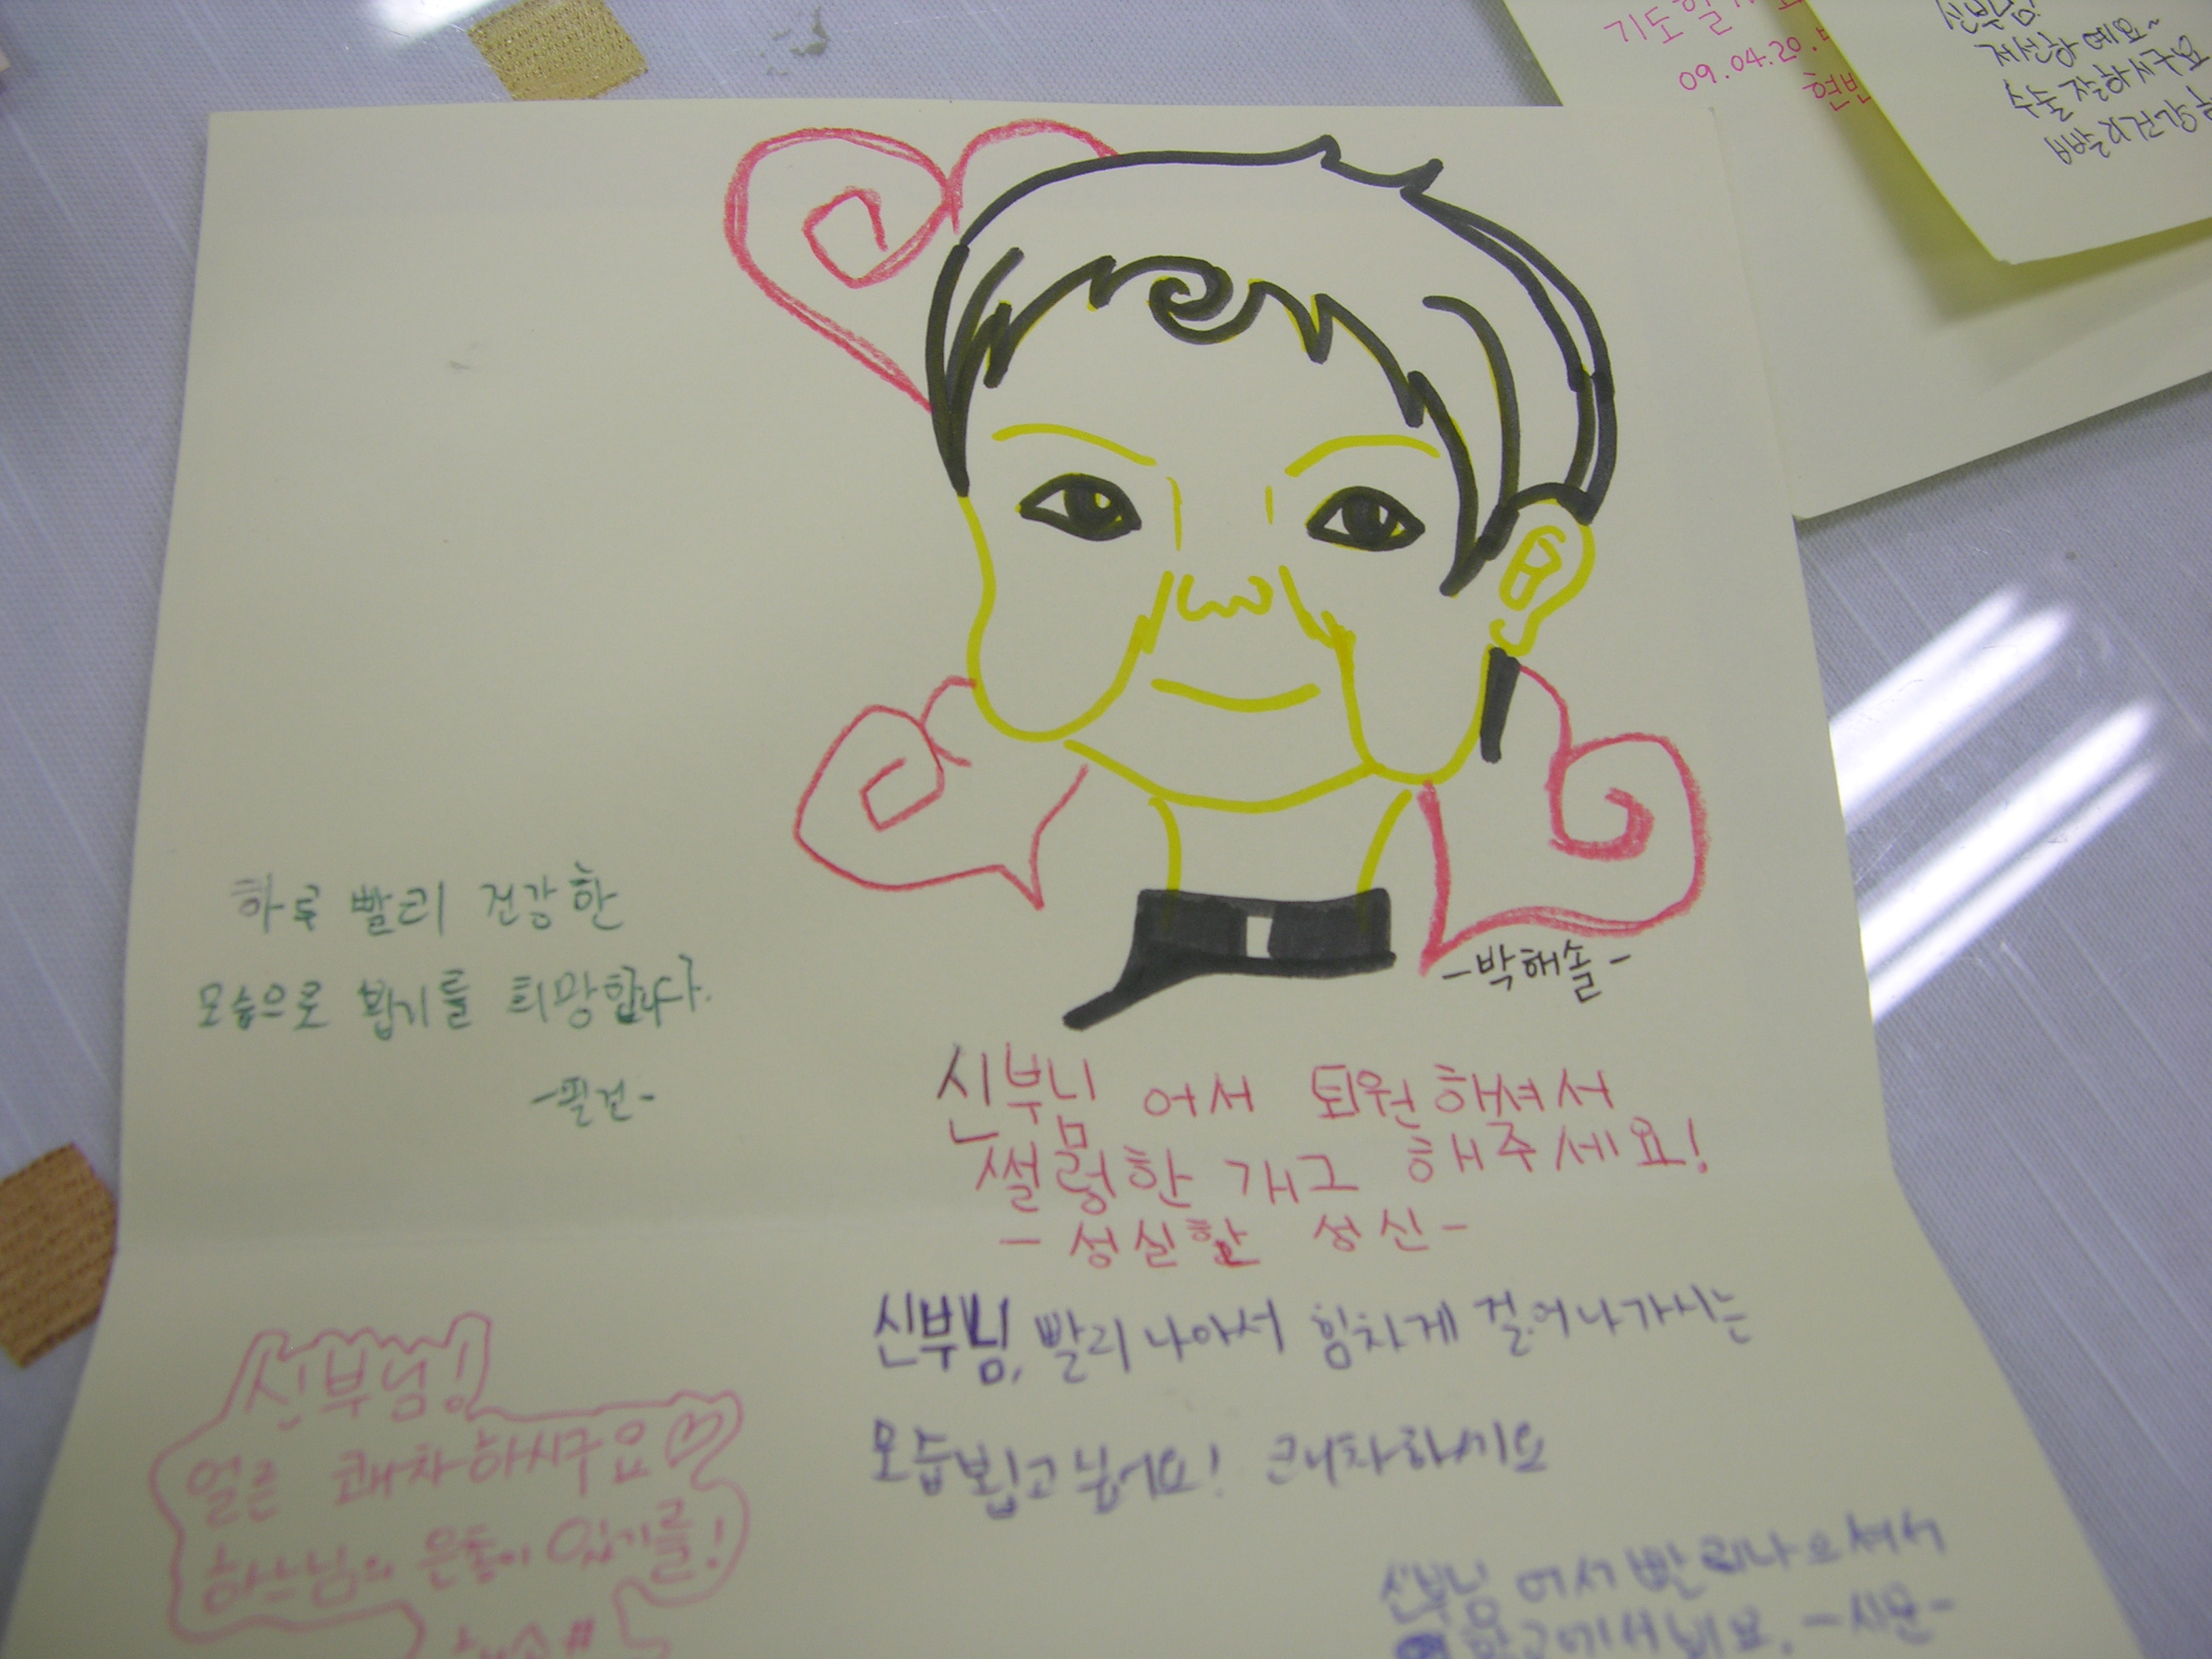 기도할
09.04.20.
현빈
신부님
저 선창 예요~
수술 잘하시구요
빨리 건강
하루 빨리 건강한
모습으로 뵙기를 희망합니다.
-필건-
-박해솔-
신부님 어서 퇴원하셔서
썰렁한 개그 해주세요!
- 성실한 성신-
신부님, 빨리 나아서 힘차게 걸어나가시는
모습 뵙고 싶어요! 쾌차하세요
신부님!
얼른 쾌차하시구요♡
하느님의 은총이 있기를!
신부님 어서 빨리 나으셔서
학교에서 뵈요. -시몬-